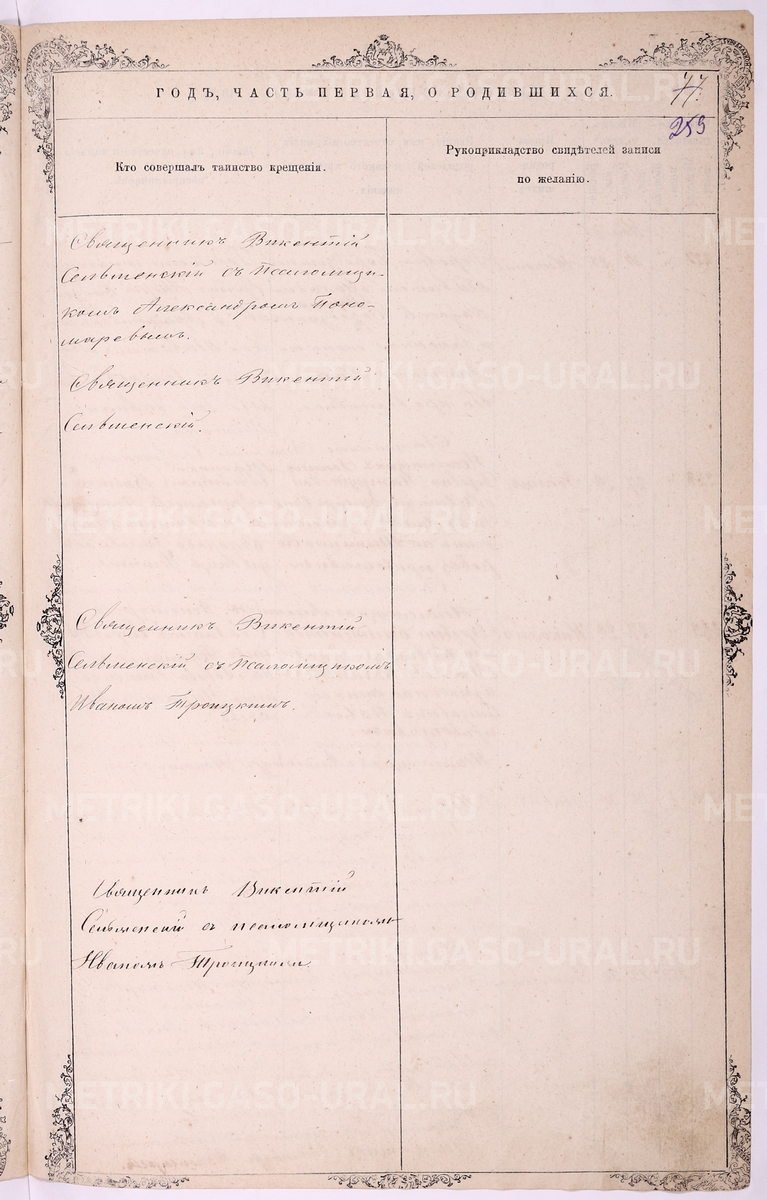 ГОДЪ, ЧАСТЬ ПЕРВАЯ, О РОДИВШИХСЯ.
77.
253
Кто совершалъ таинство крещенія.
Рукоприкладство свидѣтелей записи
по желанію.
Священникъ Викентій
Сельменскій съ Псаломщи-
комъ Александромъ Поно-
маревымъ.
Священникъ Викентій
Сельменскій.
Священникъ Викентій
Сельменскій съ Псаломщикомъ
Иваномъ Троицкимъ.
Священникъ Викентій
Сельменскій съ псаломщикомъ
Иваномъ Троицкимъ.
METRIKI.GASO-URAL.RU